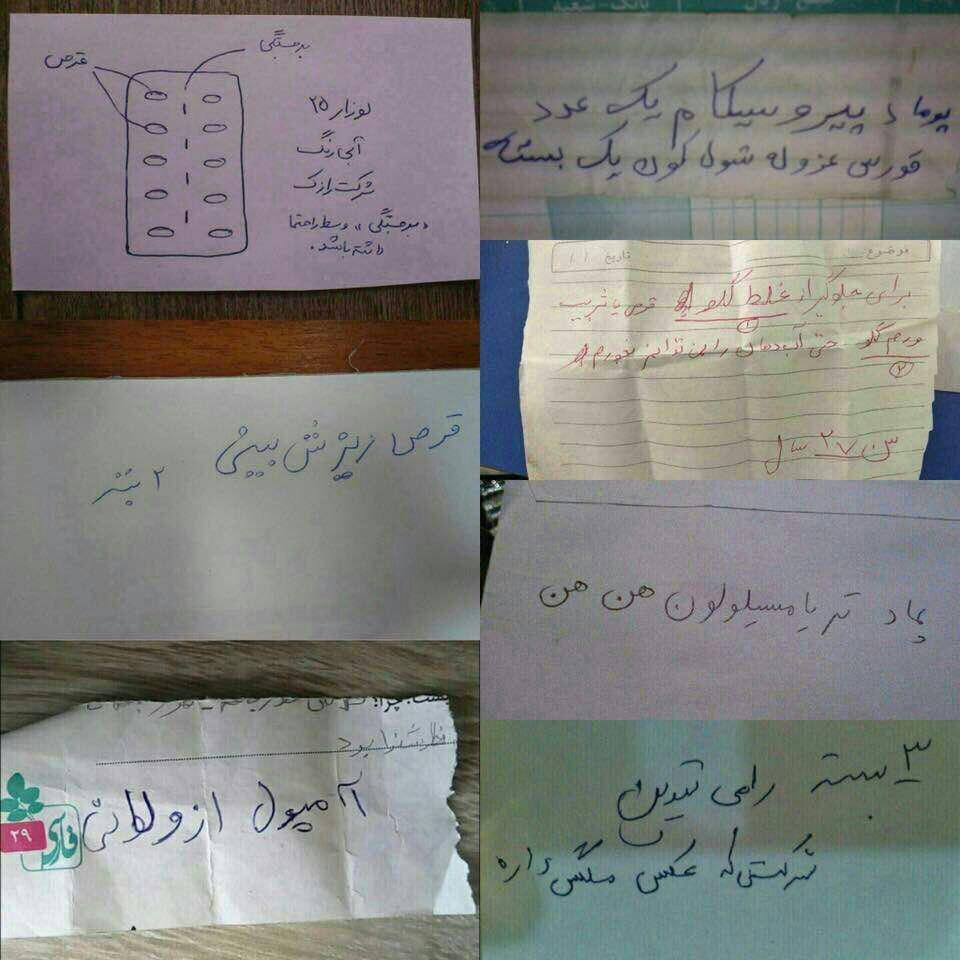 برجستگی
قرص
لوزار ۲۵
آلبالویی رنگ
شرکت رازک
«برجستگی» وسط را حتما
داشته باشد.
پوما د پیروسیکام یک عدد
قورس عزوله شول کون یک بسته
موضوع:
تاریخ / /
برای جلوگیر از غلط گلو قرص یا شربت
۱
ورم گلو حتی آب دهان را نمی توانم بخورم
۲
سن ۲۷ سال
قرص ریزش بینی
۲ بسته
پماد تریامسیلولون هن هن
آمپول ازولاکتی
فارسی
۲۹
۳ بسته رامی تیدین
شرکتی که عکس مگس داره